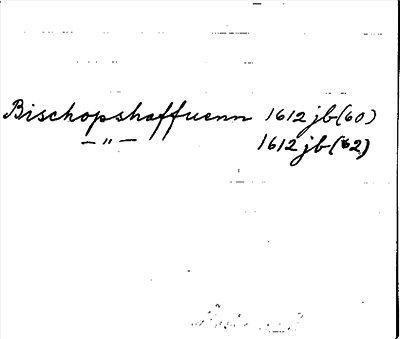 Bischopshaffuenn 1612 jb (60)
— " — 1612 jb (62)